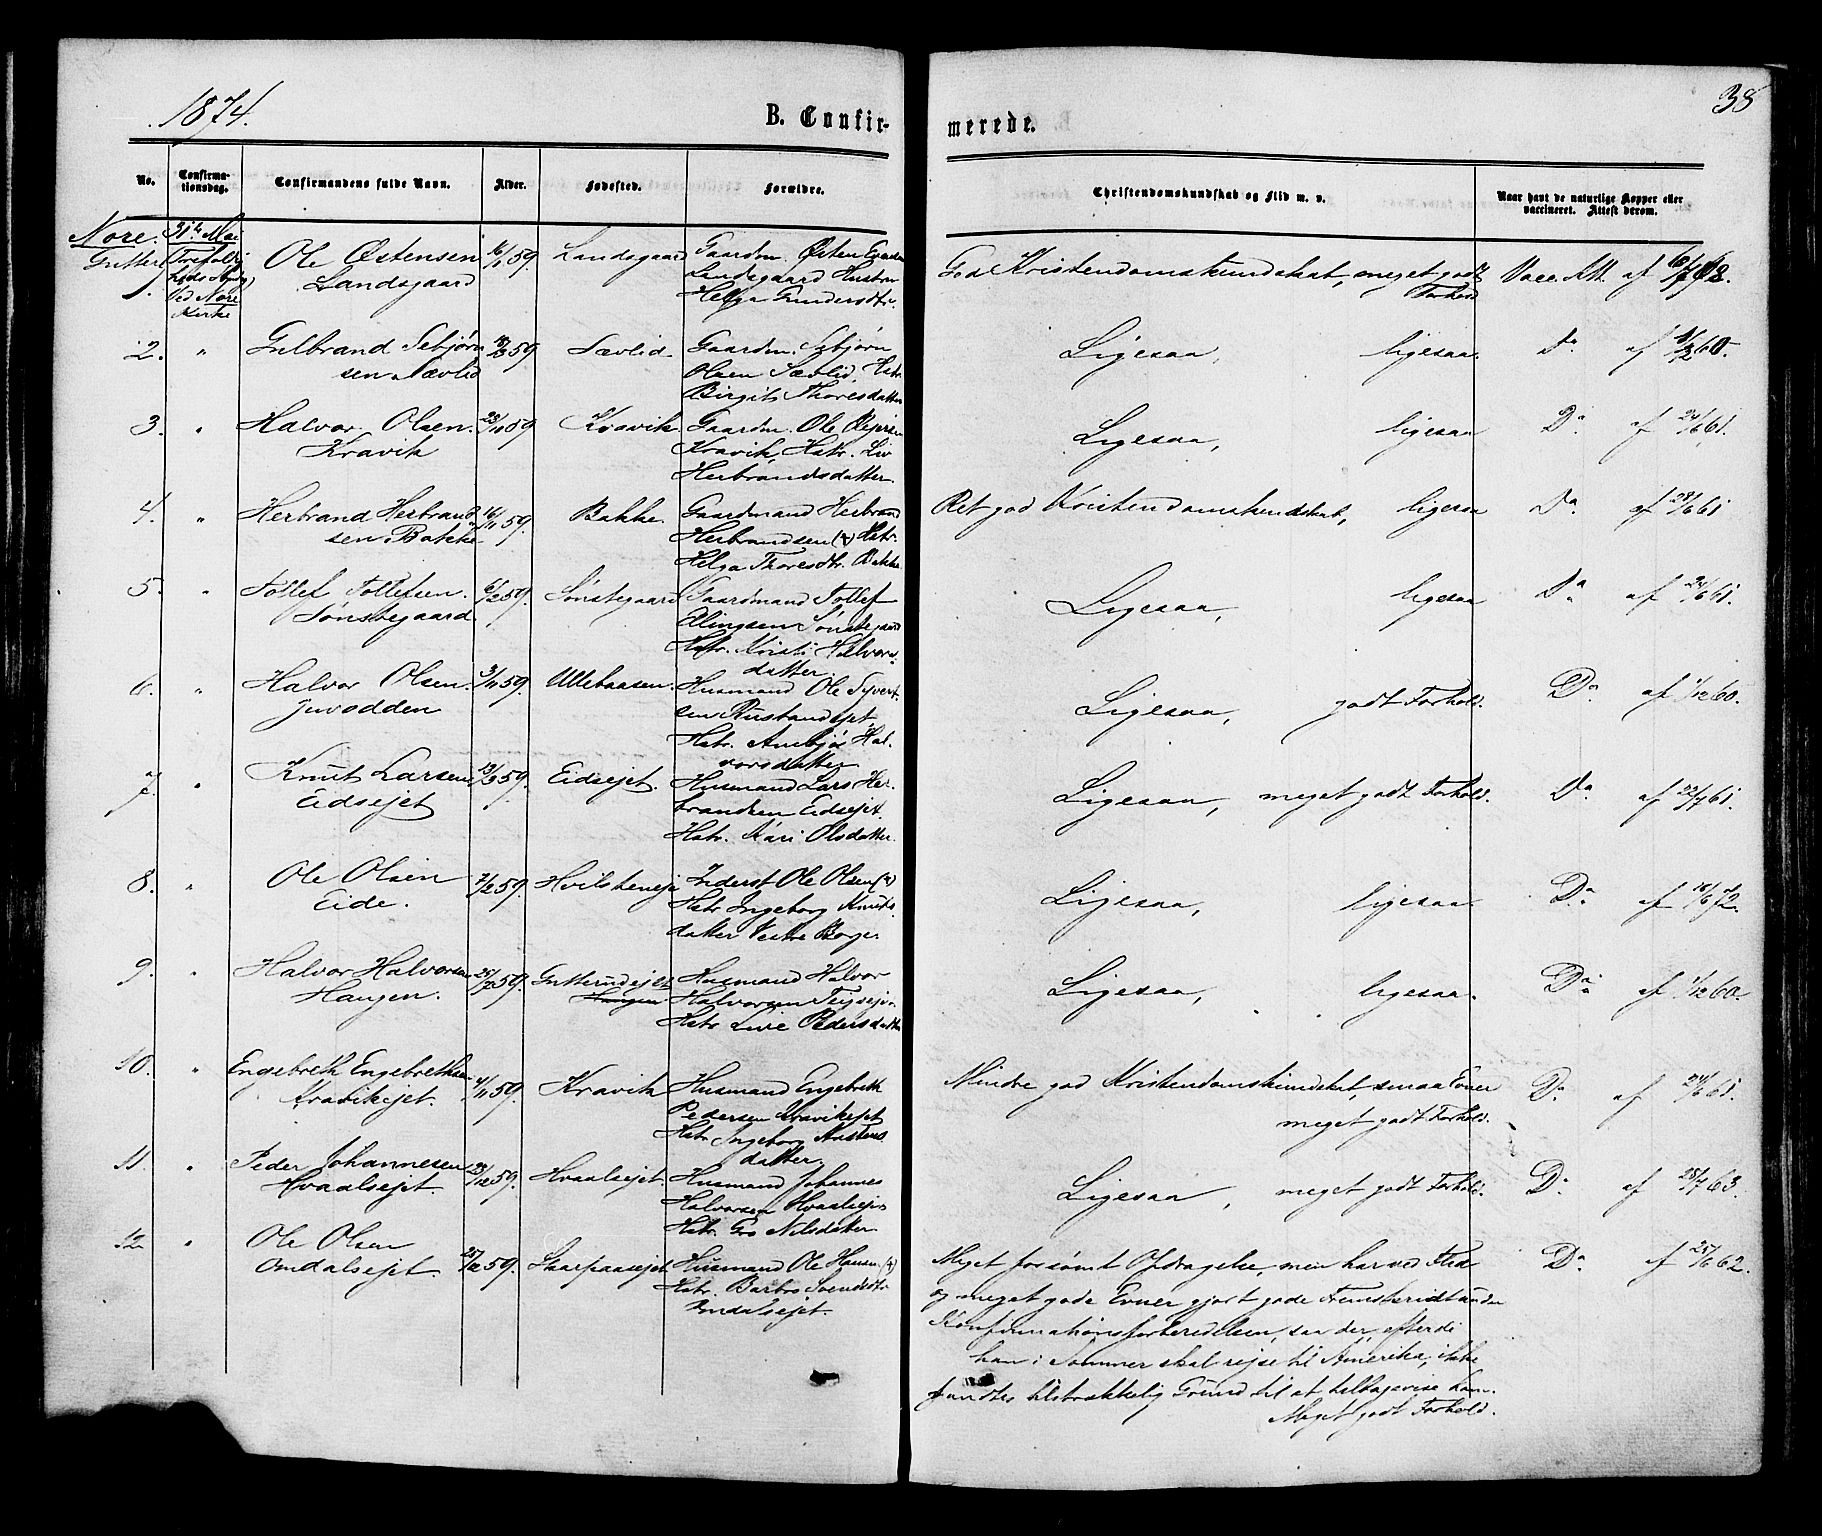 1874.
B. Confir-
merede.
38
No.
Confirma-
tionsdag.
Confirmandens fulde Navn.
Alder.
Fødested.
Forældre.
Christendomskundskab og Flid m. v.
Naar havt de naturlige Kopper eller
vaccineret. Attest derom.
Nore.
Gutter
31te Mai
Trefoldig
heds Søndag
Ved Nore
Kirke
1. Ole Østensen 16/1 59. Landsgaard Gaardm. Østen
Landsgaard Landsgaard Hustru
Helga Gundersdtr.
God Kristendomskundskab, meget godt
Forhold
Vacc. Att. af
2. " Gulbrand Sebjørn 59. Sævlid. Gaardm. Sebjørn
sen Sævlid Olsen Sævlid, Hstr.
Birgit Thoresdatter
Ligesaa, ligesaa. Do. af 60.
3. " Halvor Olsen 23/10 59 Kravik. Gaardm. Ole
Kravik Kravik, Hstr. Liv
Herbrandsdatter.
Ligesaa, ligesaa Do. af 24/6 61.
4. " Herbrand Herbrand 16/11 59. Bakke. Gaardmand Herbrand
sen Bakke Herbrandsen (†) Hstr.
Helga Thoresdtr. Bakke
Ret god Kristendomskundskab, ligesaa Do. af 28/6 61
5. " Tollef Tollefsen 6/2 59. Sønstegaard Gaardmand Tollef
Sønstegaard. Elingsen Sønstegaard
Hstr. Kristi Halvors-
datter
Ligesaa, ligesaa Do. af 24/6 61.
6. " Halvor Olsen 3/11 59. Ullebaasen. Husmand Ole Syvert-
Juvodden sen Rustandejet,
Hstr. Anebjør Hal-
vorsdatter
Ligesaa, godt Forhold. Do. af 1/12 60.
7. " Knut Larsen 13/3 59. Eidsejet. Husmand Lars Her-
Eidsejet brandsen Eidsejet.
Hstr. Kari Olsdatter.
Ligesaa, meget godt Forhold. Do. af 22/7 61.
8. " Ole Olsen 7/2 59. Inderst Ole Olsen (†)
Eide. Hstr Ingeborg Knuts-
datter Vestre
Ligesaa, ligesaa. Do. af 18/6 72.
9. " Halvor Halvorsen 25/2 59. Gutterudejet Husmand Halvor
Haugen. Haugen Halvorsen
Hstr Live Pedersdatter
Ligesaa, ligesaa. Do. af 1/12 60.
10. " Engebreth Engebrethsen 4/11 59. Kravik Husmand Engebreth
Kravikejet. Pedersen Kravikejet
Hstr Ingeborg
datter
Mindre god Kristendomskundskab, smaa Evner
meget godt Forhold. Do. af 24/6 61.
11. " Peder Johannesen 23/12 59. Hvaalsejet. Husmand Johannes
Hvaalsejet. Halvorsen Hvaalsejet
Hstr. Gro Nilsdatter
Ligesaa, meget godt Forhold. Do. af 28/7 63.
12 " Ole Olsen 59. Skarpaasejet. Husmand Ole Hansen (†)
Omdalsejet. Hstr. Barbro Svendsdtr
Omdalsejet.
Meget forsømt Opdragelse, men har ved Flid Do. af 25/6 62.
og meget gode Evner gjort gode Fremskridt under
Konfirmationsforberedelsen, saa der, efterdi
han i Sommer skal rejse til Amerika, ikke
fandtes tilstrækkelig Grund til at tilbagevise ham.
Meget godt Forhold.